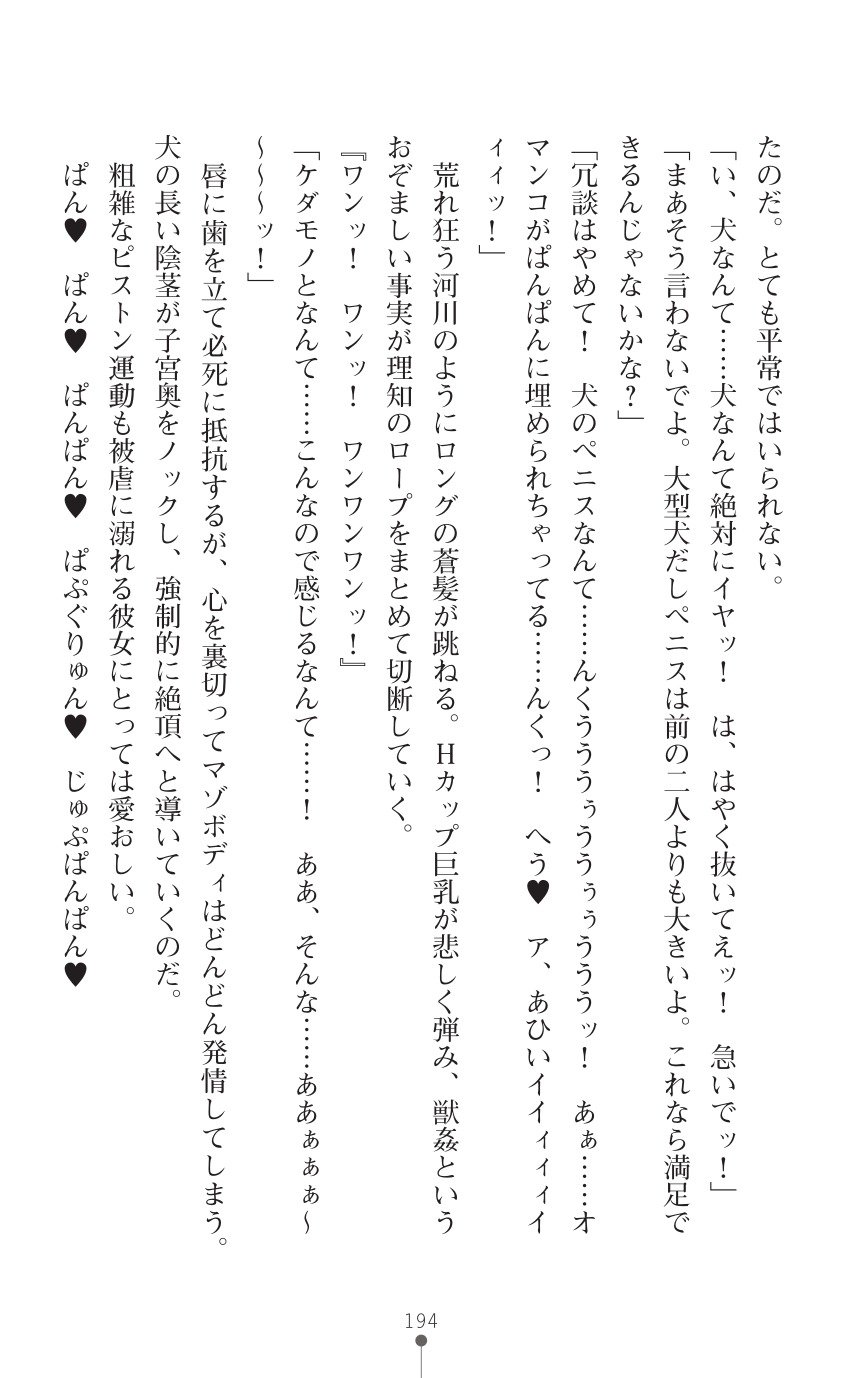 たのだ。とても平常ではいられない。
「い、犬なんて……犬なんて絶対にイヤッ！　は、はやく抜いてえッ！　急いでッ！」
「まあそう言わないでよ。大型犬だしペニスは前の二人よりも大きいよ。これなら満足で
きるんじゃないかな？」
「冗談はやめて！　犬のペニスなんて……んくうううぅううぅぅうううッ！　あぁ……オ
マンコがぱんぱんに埋められちゃってる……んくっ！　へう♥　ア、あひいイイィィィイ
ィィッ！」
　荒れ狂う河川のようにロングの蒼髪が跳ねる。Hカップ巨乳が悲しく弾み、獣姦という
おぞましい事実が理知のロープをまとめて切断していく。
『ワンッ！　ワンッ！　ワンワンワンッ！』
「ケダモノとなんて……こんなので感じるなんて……！　ああ、そんな……ああぁぁぁ～
～～～ッ！」
　唇に歯を立て必死に抵抗するが、心を裏切ってマゾボディはどんどん発情してしまう。
犬の長い陰茎が子宮奥をノックし、強制的に絶頂へと導いていくのだ。
　粗雑なピストン運動も被虐に溺れる彼女にとっては愛おしい。
　ぱん♥　ぱん♥　ぱんぱん♥　ぱぷぐりゅん♥　じゅぷぱんぱん♥
194